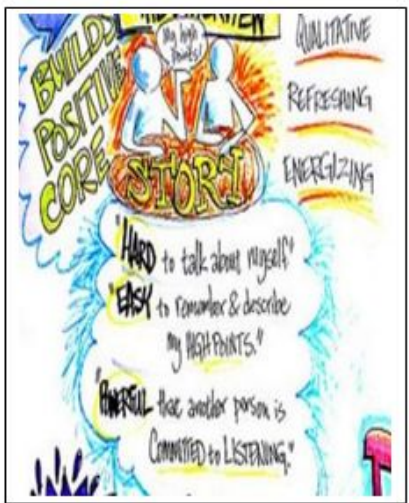 THE INTERVIEW
My high
points!
BUILDS
POSITIVE
CORE
STORY
QUALITATIVE
REFRESHING
ENERGIZING
"HARD to talk about myself"
"EASY to remember & describe
my HIGH POINTS."
"POWERFUL that another person is
COMMITTED to LISTENING."